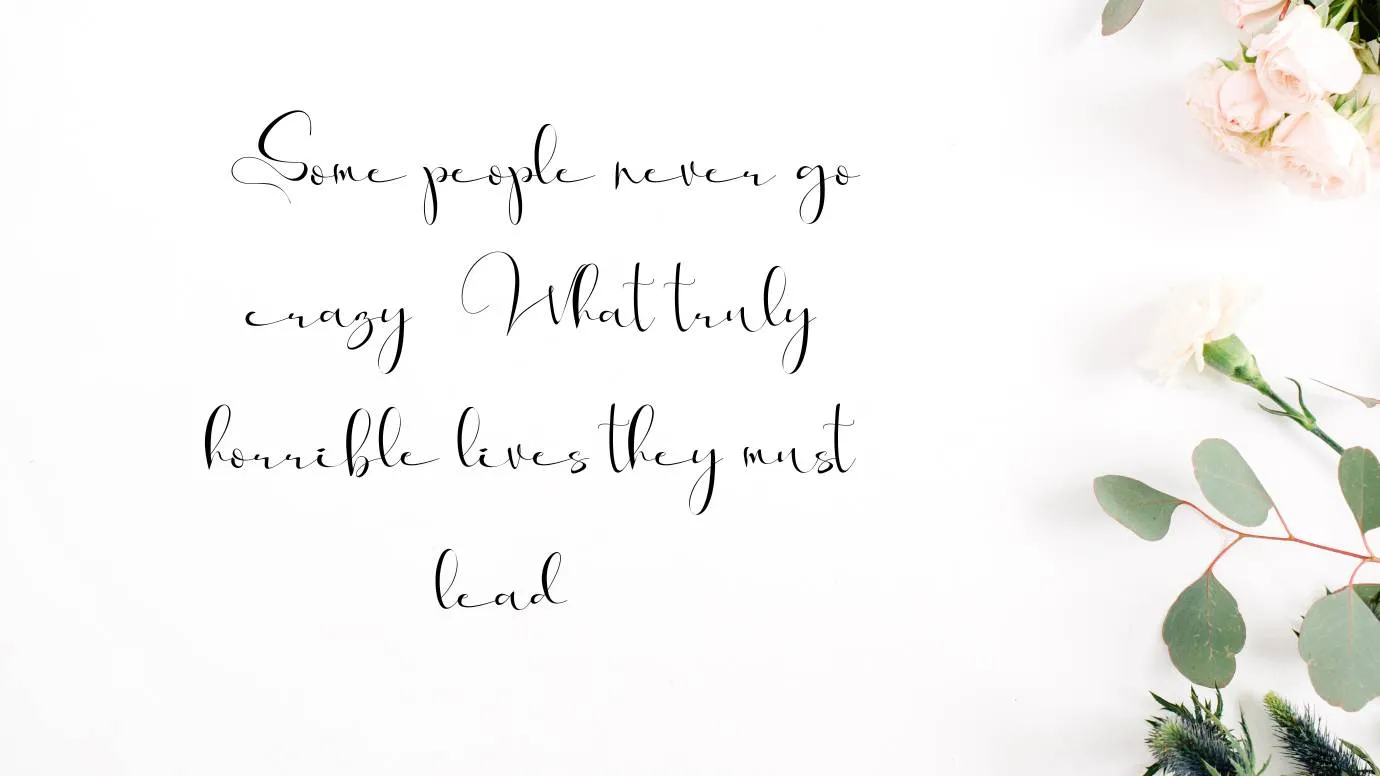 Some people never go
crazy What truly
horrible lives they must
lead